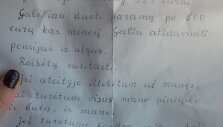 Galėčiau duoti paramą po 600
eurų kas mėnesį. Galiu atidavinėti
pensijas ir algas.
Reikėtų susitart.
Jei ateityje išteketum už manęs,
turėtum visus mano pinigus
ir butą, ir mane.
Jei turėtume